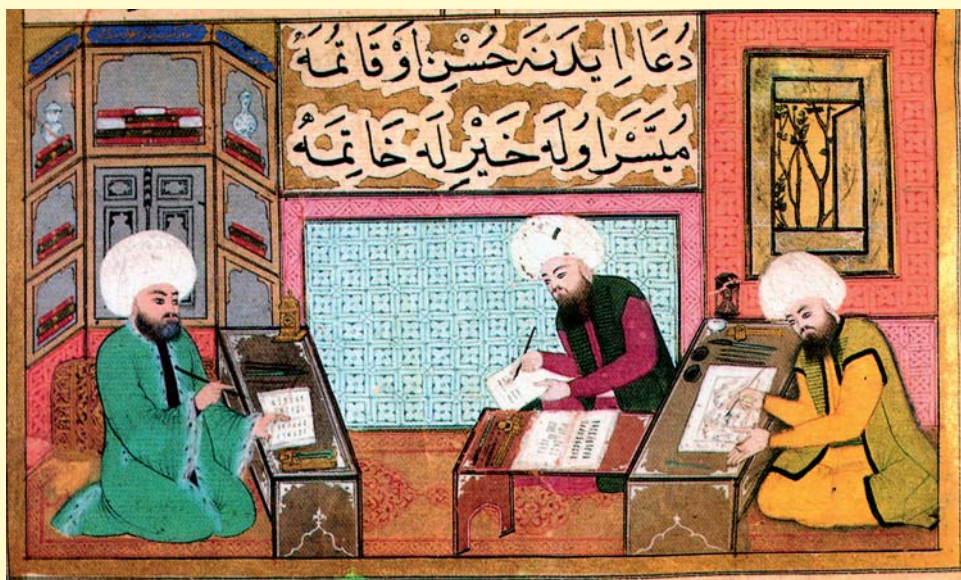 دُعَا اِيدَنَه حُسْنِ اَوْقَاتُمَهْ
مُيَسَّرْ اوُلَه خَيْرِلَه خَاتِمَهْ